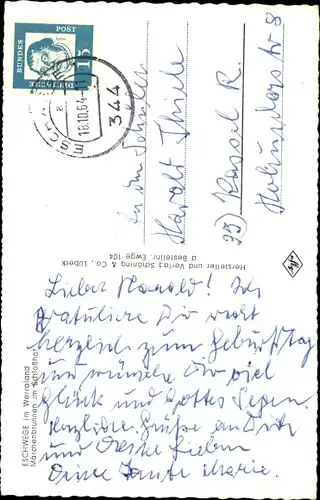 DEUTSCHE
BUNDES
POST
15
ESCHWEGE
18.10.64
a
344
An den Schüler
Harald Thiele
35) Kassel R.
Hersteller und Verlag Schöning & Co., Lübeck
Bestellnr. Ewge 104
ESCHWEGE im Werraland
Märchenbrunnen im Schloßhof
Lieber Harald! Ich
gratuliere Dir recht
herzlich zum Geburtstag
und wünsche Dir viel
Glück und Gottes Segen.
Herzliche Grüße an Dich
und Deine Lieben
Deine Tante